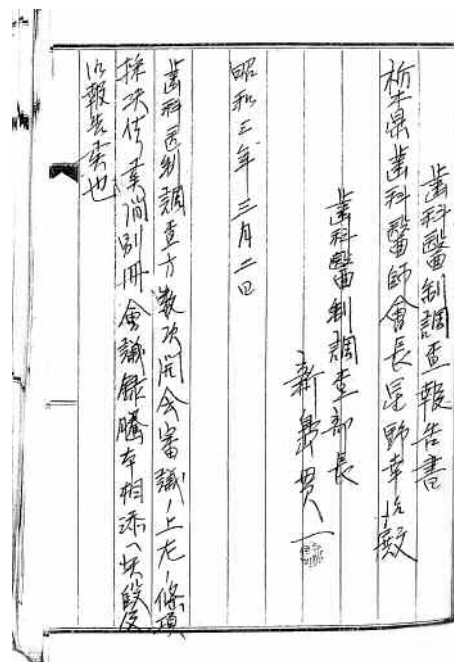 歯科醫制調査報告書
栃木縣歯科醫師會長星野幸治殿
歯科醫制調査部長
新島貫一
昭和三年三月二日
歯科医制調査方数次開会審議ノ上左ノ條項
採決仕リ候間別冊會議録謄本相添ヘ此段
報告候也